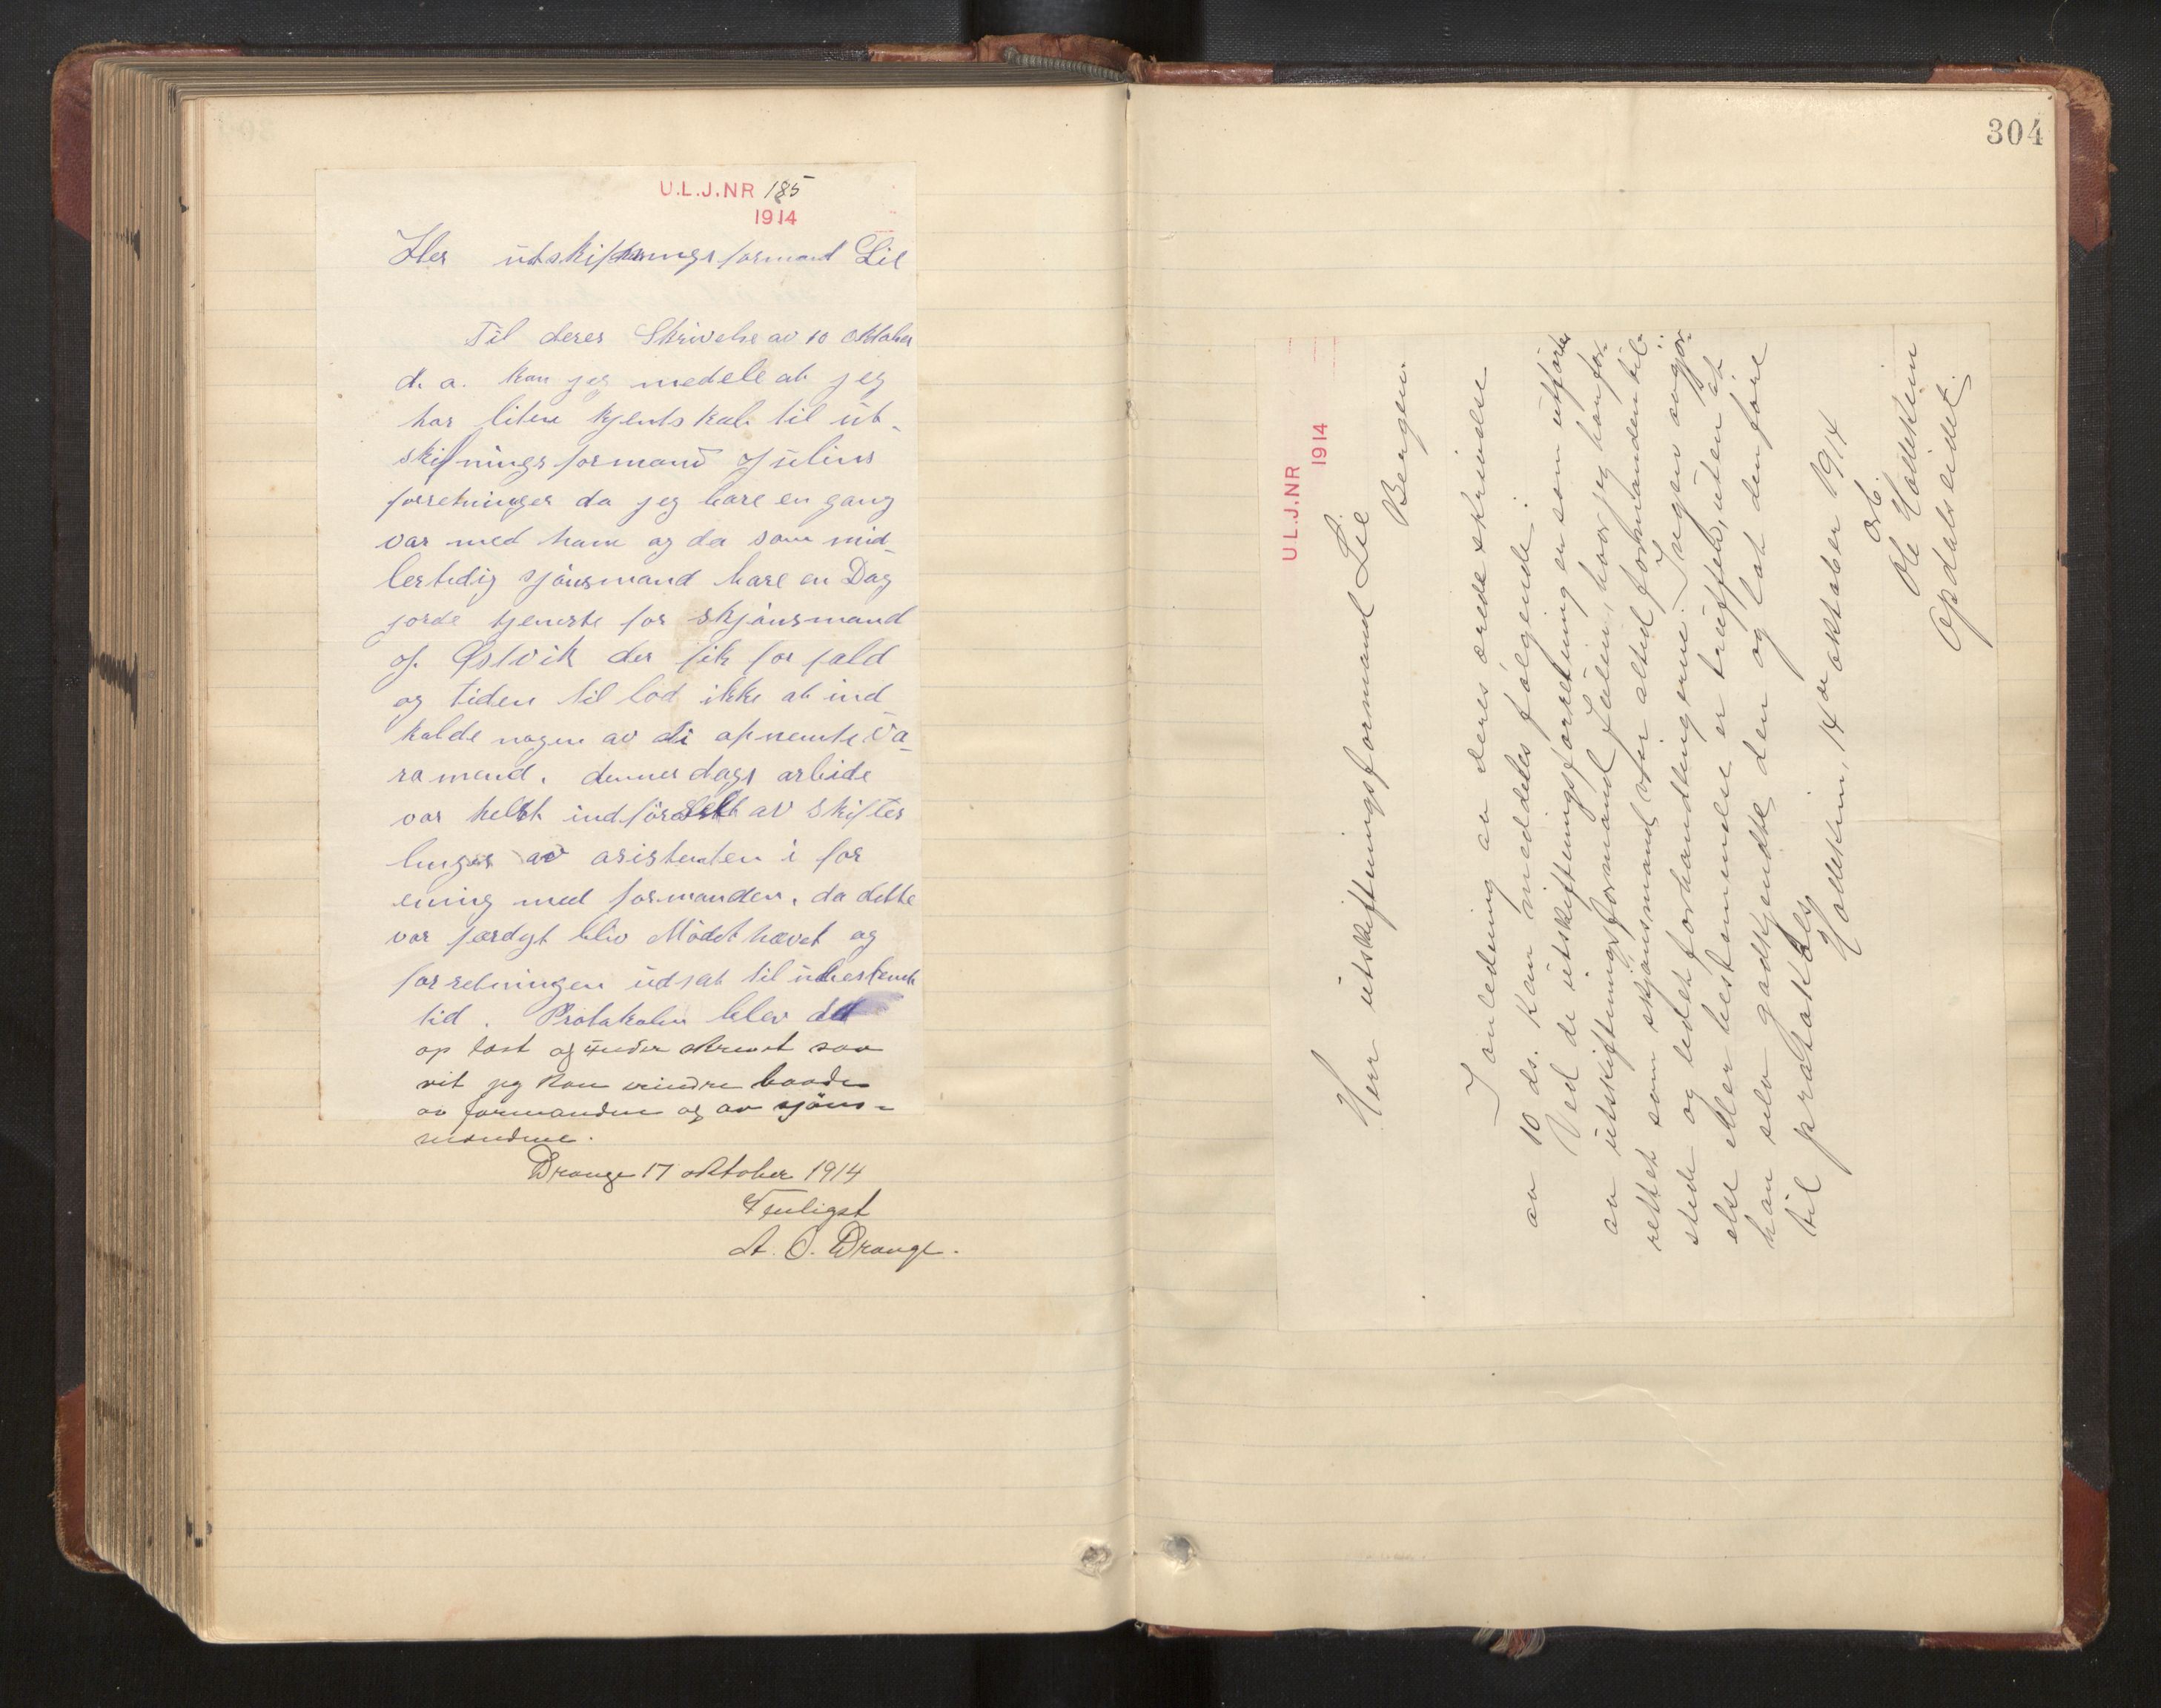 U.L.J.NR 185
1914
Her utskiftningsformand Lie
Til deres Skrivelse av 10 oktober
d. a. kan jeg medele at jeg
har liten kjentskab til ut-
skiftningsformand Julins
forretninger da jeg bare en gang
var med ham og da som mid-
lertidig sjönsmand bare en Dag
jorde tjeneste for skjönsmand
J. Östvik der fik forfald
og tiden til lod ikke at ind
kalde nogen av di opnemte va-
ramend. dennes dags arbide
var helst indförelse av skifter
linger av asistenten i for
ening med formanden, da dette
var færdgt blev Mödet hævet og
forretningen udsat til ubestemt
tid. Protokolen blev da
op læst og under skrevet saa
vit jeg kan erindre baade
av formanden og av sjöns-
mændene.
Drange 17 oktober 1914
Venligst
A. O. Drange.
304
U.L.J.NR
1914
Herr utskiftningsformand Lie
Bergen.
I anledning av deres ærede skrivelse
av 10 ds. kan meddeles følgende:
Ved de utskiftningsforretninger som utførtes
av utskiftningsformand Julin, hvor jeg har for-
rettet som skjønsmand var altid formanden til-
stede og ledet forhandlingerne. Ingen avgjør-
else eller bestemmelse er truffen, uten at
han selv godkjendte den og lot den føre
til protokols
Hollekim, 14de oktober 1914
Ærb.
Ole Hollekim
Opdalseidet.